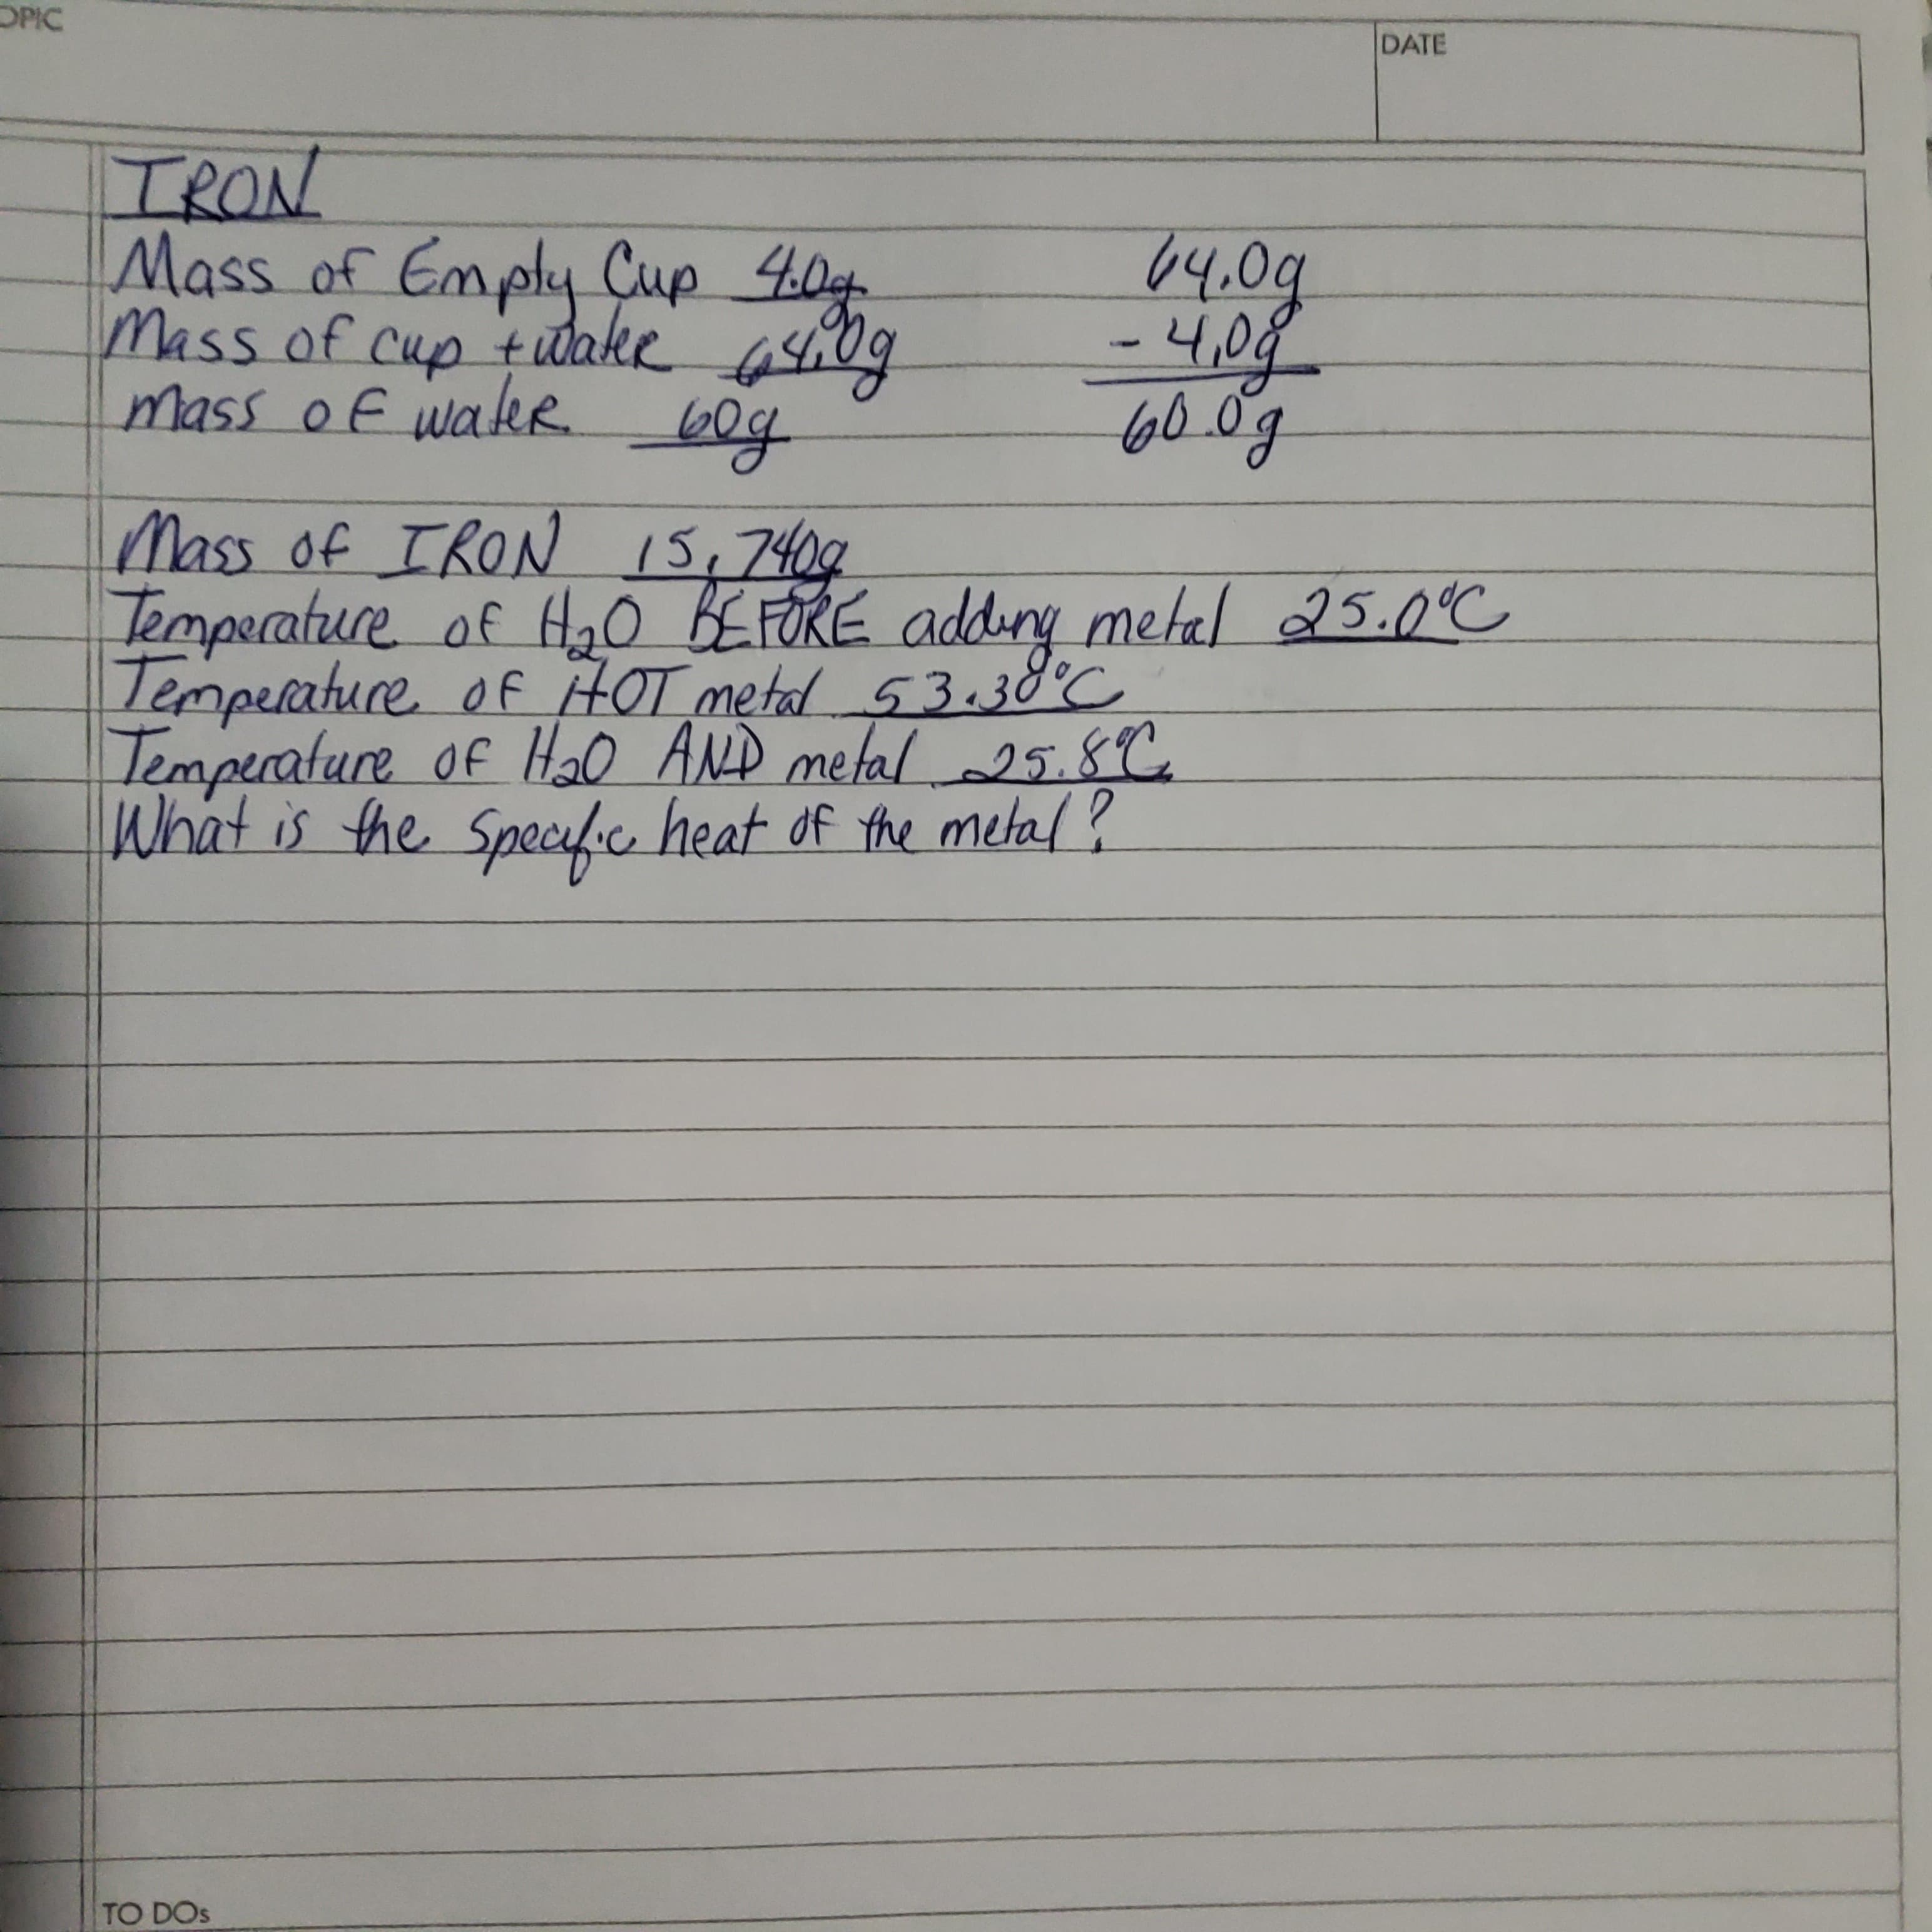 OPIC
DATE
IRON
Mass of Empty Cup 4.0g 64.0g
Mass of cup + water 64.0g - 4.0g
Mass of water 60g 60.0g
Mass of IRON 15.740g
Temperature of H₂O BEFORE adding metal 25.0°C
Temperature of HOT metal 53.30°C
Temperature of H₂O AND metal 25.8°C
What is the specific heat of the metal?
TO DOs